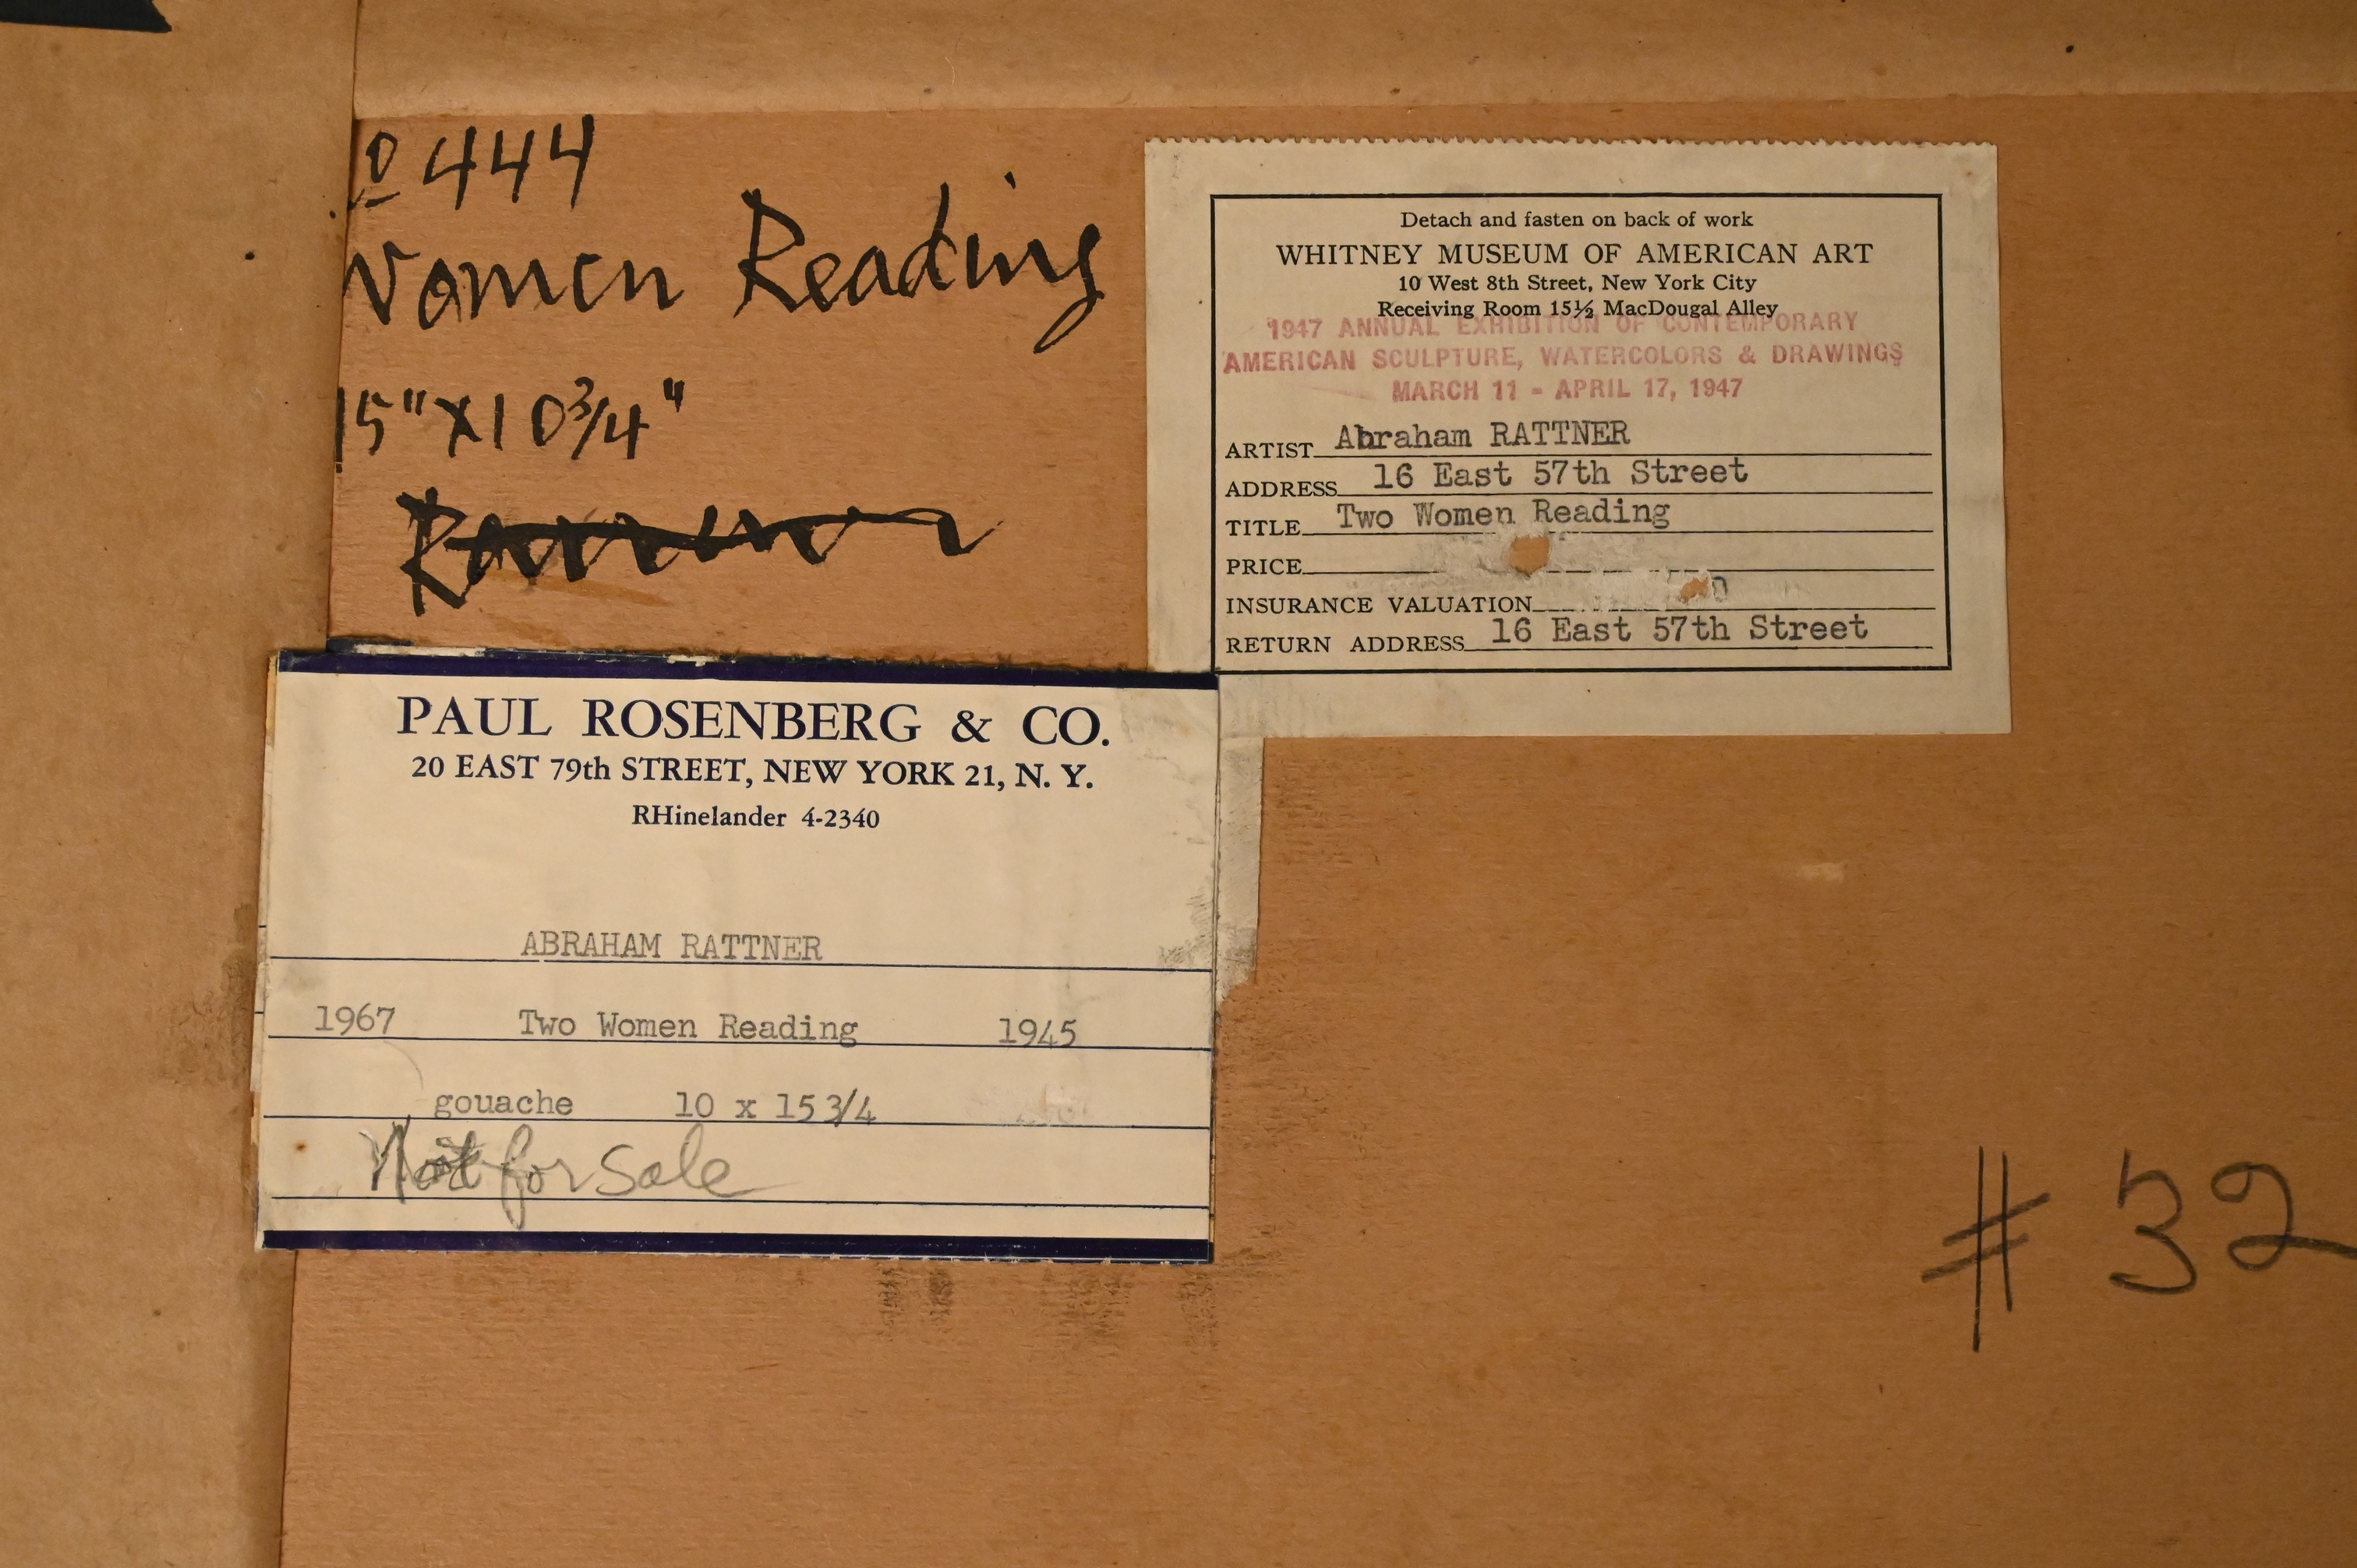 o 444
Women Reading
15" x 10 3/4"
Detach and fasten on back of work
WHITNEY MUSEUM OF AMERICAN ART
10 West 8th Street, New York City
Receiving Room 15½ MacDougal Alley
1947 ANNUAL EXHIBITION OF CONTEMPORARY
AMERICAN SCULPTURE, WATERCOLORS & DRAWINGS
MARCH 11 - APRIL 17, 1947
ARTIST Abraham RATTNER
ADDRESS 16 East 57th Street
TITLE Two Women Reading
PRICE
INSURANCE VALUATION
RETURN ADDRESS 16 East 57th Street
PAUL ROSENBERG & CO.
20 EAST 79th STREET, NEW YORK 21, N. Y.
RHinelander 4-2340
ABRAHAM RATTNER
1967 Two Women Reading 1945
gouache 10 x 15 3/4
Not for Sale
# 32